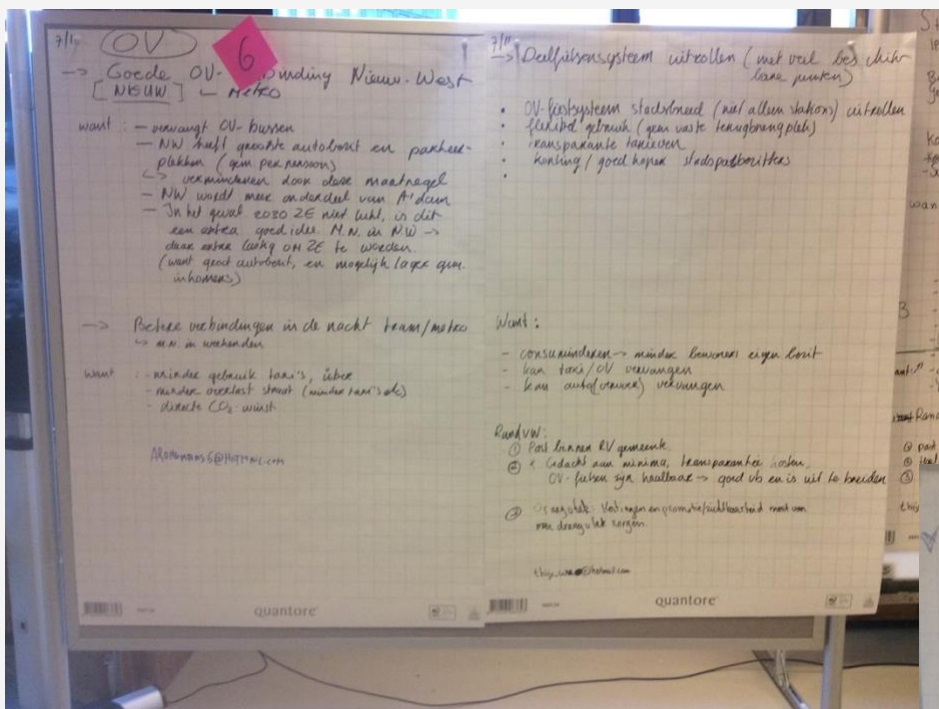 7/11 OV
6
→ Goede OV- binding Nieuw-West
[NIEUW] Metro
want : - vervangt OV-bussen
- NW heeft grootste autobezit en parkeer-
plekken (gem per persoon)
↳ verminderen door deze maatregel
- NW wordt meer onderdeel van A'dam
- In het geval 2030 ZE niet lukt, is dit
een extra goed idee. M.N. in N.W →
daar extra lastig om ZE te worden.
(want groot autobezit, en mogelijk lager gem.
inkomens)
→ Betere verbindingen in de nacht tram/metro
↳ m.n. in weekenden
want : - minder gebruik taxi's, über
- minder overlast straat (minder taxi's etc)
- directe CO2-winst
quantore
7/11
→ Deelfietsensysteem uitrollen (met veel beschik-
bare punten)
• OV-fietssysteem stadsbreed (niet alleen stations) uitrollen
• flexibel gebruik (geen vaste terugbrengplek)
• transparante tarieven
• korting / goedkoper stadspasbezitters
•
Want :
- consuminderen → minder bewoners eigen bezit
- kan taxi/OV vervangen
- kan auto( ) vervangen
Randvw:
① Past binnen RV gemeente.
② Gedacht aan minima, transparantie kosten,
OV-fietsen zijn haalbaar → goed vb en is uit te breiden
③ : Kortingen en promotie/zichtbaarheid moet voor
meer draagvlak zorgen.
@hotmail.com
quantore